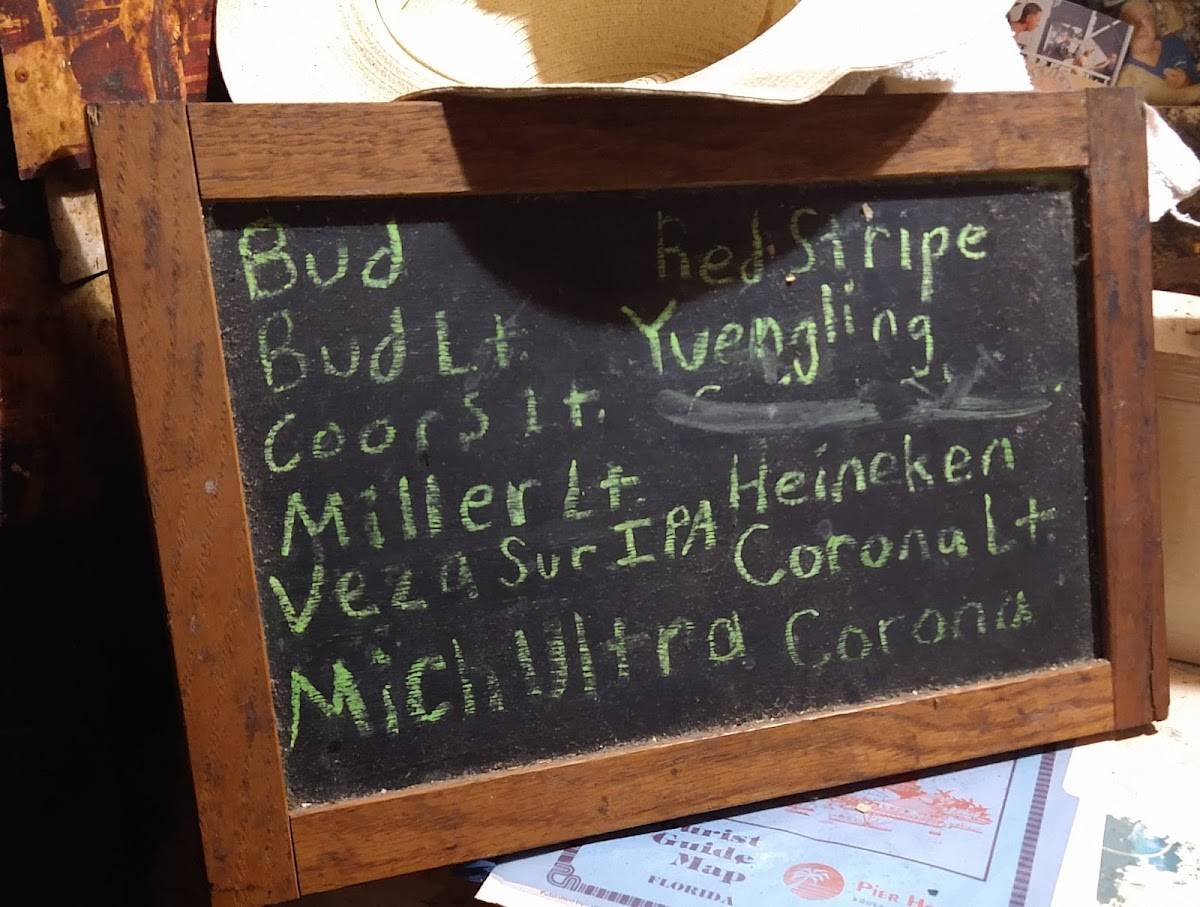 Bud
Bud Lt.
Coors Lt.
Miller Lt.
Veza Sur IPA
Mich Ultra
Red Stripe
Yuengling
Heineken
Corona Lt.
Corona
Guide
Map
FLORIDA
PIER